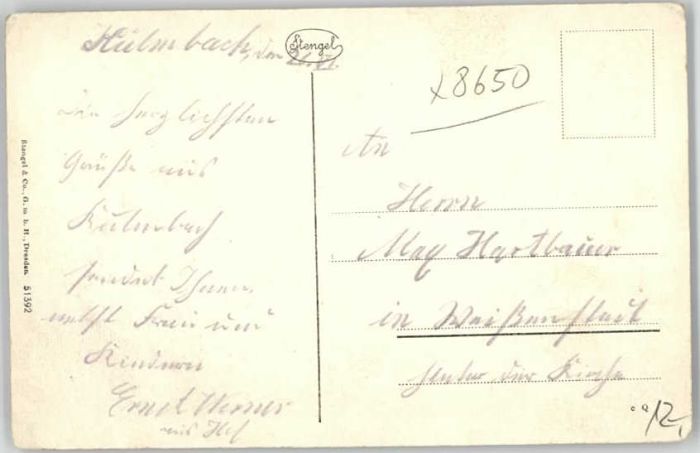 Kulmbach, den
Stengel
Die herzlichsten
Grüße aus
Kulmbach
sendet Ihnen
nebst Frau und
Kindern
Ernst Werner
aus Hof
x8650
An
Herrn
Max Hartbauer
in Weißenstadt
hinter der Kirche
Stengel & Co., G. m. b. H., Dresden. 51392
12,-